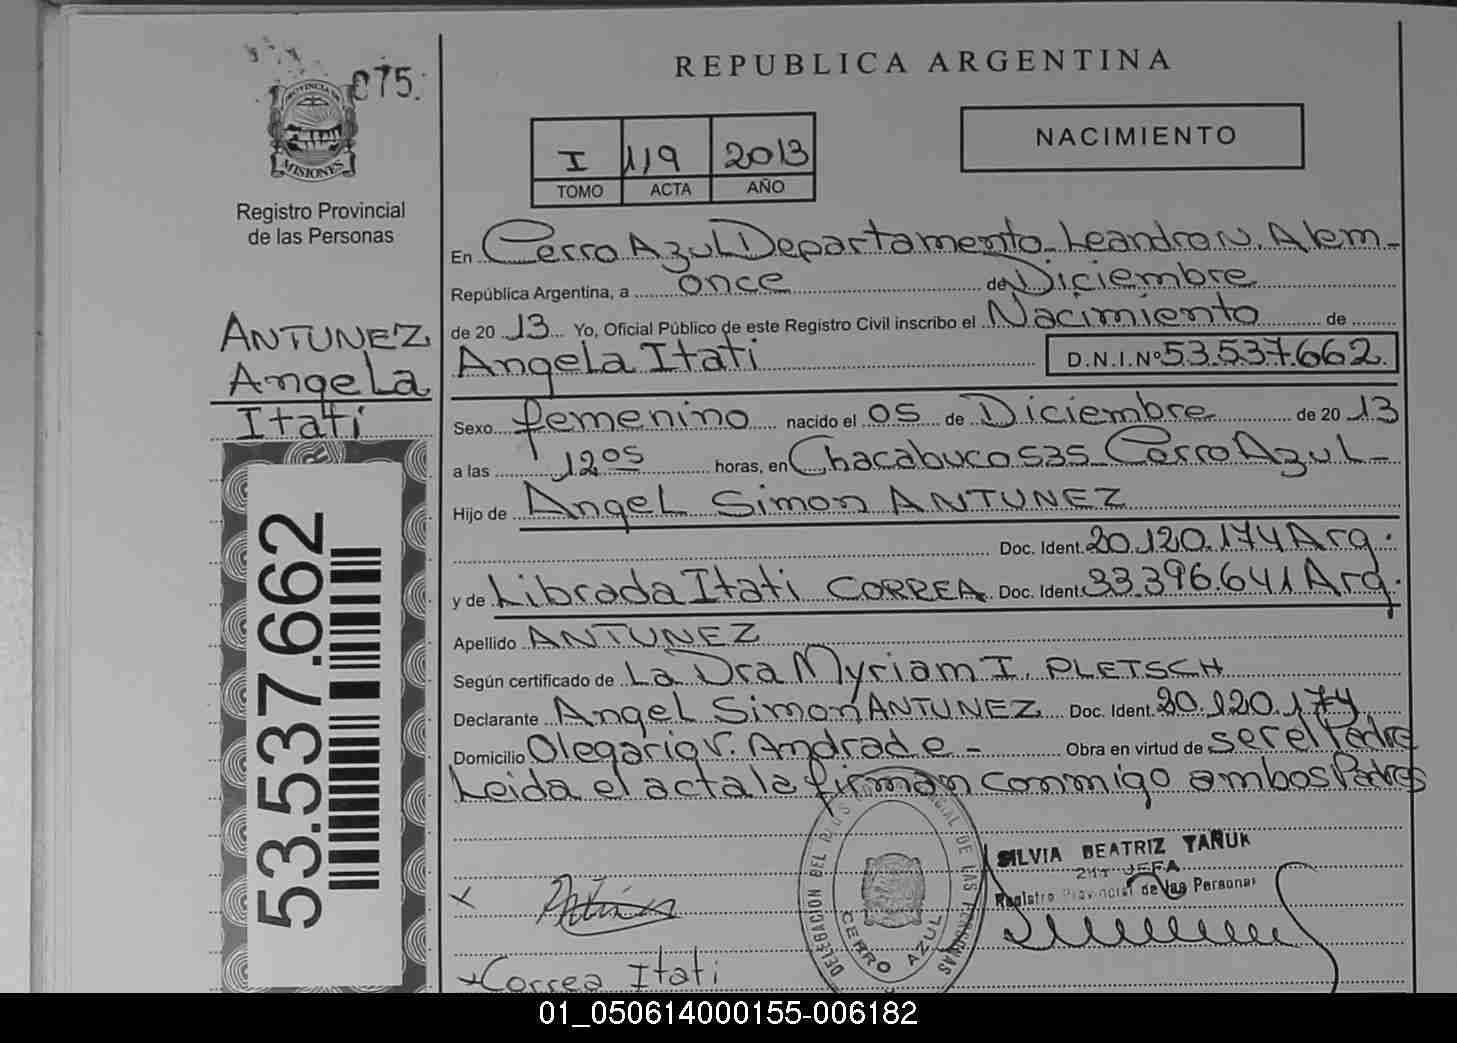 075.
PROVINCIA DE
MISIONES
Registro Provincial
de las Personas
ANTUNEZ
Angela
Itati
53.537.662
REPUBLICA ARGENTINA
I 119 2013
TOMO ACTA AÑO
NACIMIENTO
En Cerro Azul Departamento Leandro N. Alem
República Argentina, a once de Diciembre
de 20 13 Yo, Oficial Público de este Registro Civil inscribo el Nacimiento de
Angela Itati D.N.I.Nº 53.537.662.
Sexo femenino nacido el 05 de Diciembre de 20 13
a las 12 05 horas, en Chacabuco 535 Cerro Azul
Hijo de Angel Simon ANTUNEZ
Doc. Ident. 20.120.174 Arg.
y de Librada Itati CORREA Doc. Ident. 33.396.641 Arg.
Apellido ANTUNEZ
Según certificado de La Dra Myriam I. PLETSCH
Declarante Angel Simon ANTUNEZ Doc. Ident. 20.120.174
Domicilio Olegario V. Andrade - Obra en virtud de ser el Padre
Leida el acta la firman conmigo ambos Padres
DELEGACION DEL DE LAS PERSONAS
CERRO AZUL
SILVIA BEATRIZ TAÑUK
JEFA
Registro Provincial de las Personas
x
x Correa Itati
01_050614000155-006182